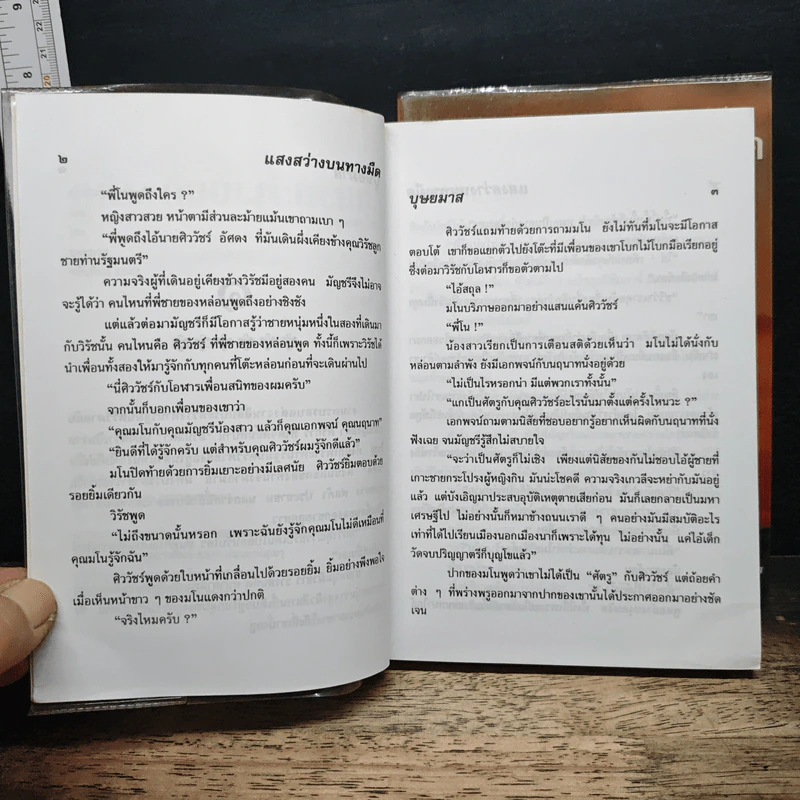 9
8
22
21
20
๒
แสงสว่างบนทางมืด
“พี่โนพูดถึงใคร ?”
หญิงสาวสวย หน้าตามีส่วนละม้ายแม้นเขาถามเบา ๆ
“พี่พูดถึงไอ้นายศิววัชร์ อัศดง ที่มันเดินผึ่งเคียงข้างคุณวิรัชลูก
ชายท่านรัฐมนตรี”
ความจริงผู้ที่เดินอยู่เคียงข้างวิรัชมีอยู่สองคน มัญชรีจึงไม่อาจ
จะรู้ได้ว่า คนไหนที่พี่ชายของหล่อนพูดถึงอย่างชิงชัง
แต่แล้วต่อมามัญชรีก็มีโอกาสรู้ว่าชายหนุ่มหนึ่งในสองที่เดินมา
กับวิรัชนั้น คนไหนคือ ศิววัชร์ ที่พี่ชายของหล่อนพูด ทั้งนี้ก็เพราะวิรัชได้
นำเพื่อนทั้งสองให้มารู้จักกับทุกคนที่โต๊ะหล่อนก่อนที่จะเดินผ่านไป
“นี่ศิววัชร์กับโอฬารเพื่อนสนิทของผมครับ”
จากนั้นก็บอกเพื่อนของเขาว่า
“คุณมโนกับคุณมัญชรีน้องสาว แล้วก็คุณเอกพจน์ คุณนฤนาท”
“ยินดีที่ได้รู้จักครับ แต่สำหรับคุณศิววัชร์ผมรู้จักดีแล้ว”
มโนปิดท้ายด้วยการยิ้มเยาะอย่างมีเลศนัย ศิววัชร์ยิ้มตอบด้วย
รอยยิ้มเดียวกัน
วิรัชพูด
“ไม่ถึงขนาดนั้นหรอก เพราะฉันยังรู้จักคุณมโนไม่ดีเหมือนที่
คุณมโนรู้จักฉัน”
ศิววัชร์พูดด้วยใบหน้าที่เกลื่อนไปด้วยรอยยิ้ม ยิ้มอย่างพึงพอใจ
เมื่อเห็นหน้าขาว ๆ ของมโนแดงกว่าปกติ
“จริงไหมครับ ?”
บุษยมาส
๓
ศิววัชร์แถมท้ายด้วยการถามมโน ยังไม่ทันที่มโนจะมีโอกาส
ตอบโต้ เขาก็ขอแยกตัวไปยังโต๊ะที่มีเพื่อนของเขาโบกไม้โบกมือเรียกอยู่
ซึ่งต่อมาวิรัชกับโอฬารก็ขอตัวตามไป
“ไอ้สถุล !”
มโนบริภาษออกมาอย่างแสนแค้นศิววัชร์
“พี่โน !”
น้องสาวเรียกเป็นการเตือนสติด้วยเห็นว่า มโนไม่ได้นั่งกับ
หล่อนตามลำพัง ยังมีเอกพจน์กับนฤนาทนั่งอยู่ด้วย
“ไม่เป็นไรหรอกน่า มีแต่พวกเราทั้งนั้น”
“แกเป็นศัตรูกับคุณศิววัชร์อะไรนั่นมาตั้งแต่ครั้งไหนวะ ?”
เอกพจน์ถามตามนิสัยที่ชอบอยากรู้อยากเห็นผิดกับนฤนาทที่นั่ง
ฟังเฉย จนมัญชรีรู้สึกไม่สบายใจ
“จะว่าเป็นศัตรูก็ไม่เชิง เพียงแต่นิสัยของกันไม่ชอบไอ้ผู้ชายที่
เกาะชายกระโปรงผู้หญิงกิน มันน่ะโชคดี ความจริงเกาลีจะหย่ากับมันอยู่
แล้ว แต่บังเอิญมาประสบอุบัติเหตุตายเสียก่อน มันก็เลยกลายเป็นมหา
เศรษฐีไป ไม่อย่างนั้นก็หมาข้างถนนเราดี ๆ คนอย่างมันมีสมบัติอะไร
เท่าที่ได้ไปเรียนเมืองนอกเมืองนาก็เพราะได้ทุน ไม่อย่างนั้น แค่ไอ้เด็ก
วัดจบปริญญาตรีก็บุญโขแล้ว”
ปากของมโนพูดว่าเขาไม่ได้เป็น “ศัตรู” กับศิววัชร์ แต่ถ้อยคำ
ต่าง ๆ ที่พร่างพรูออกมาจากปากของเขานั้นได้ประกาศออกมาอย่างชัด
เจน